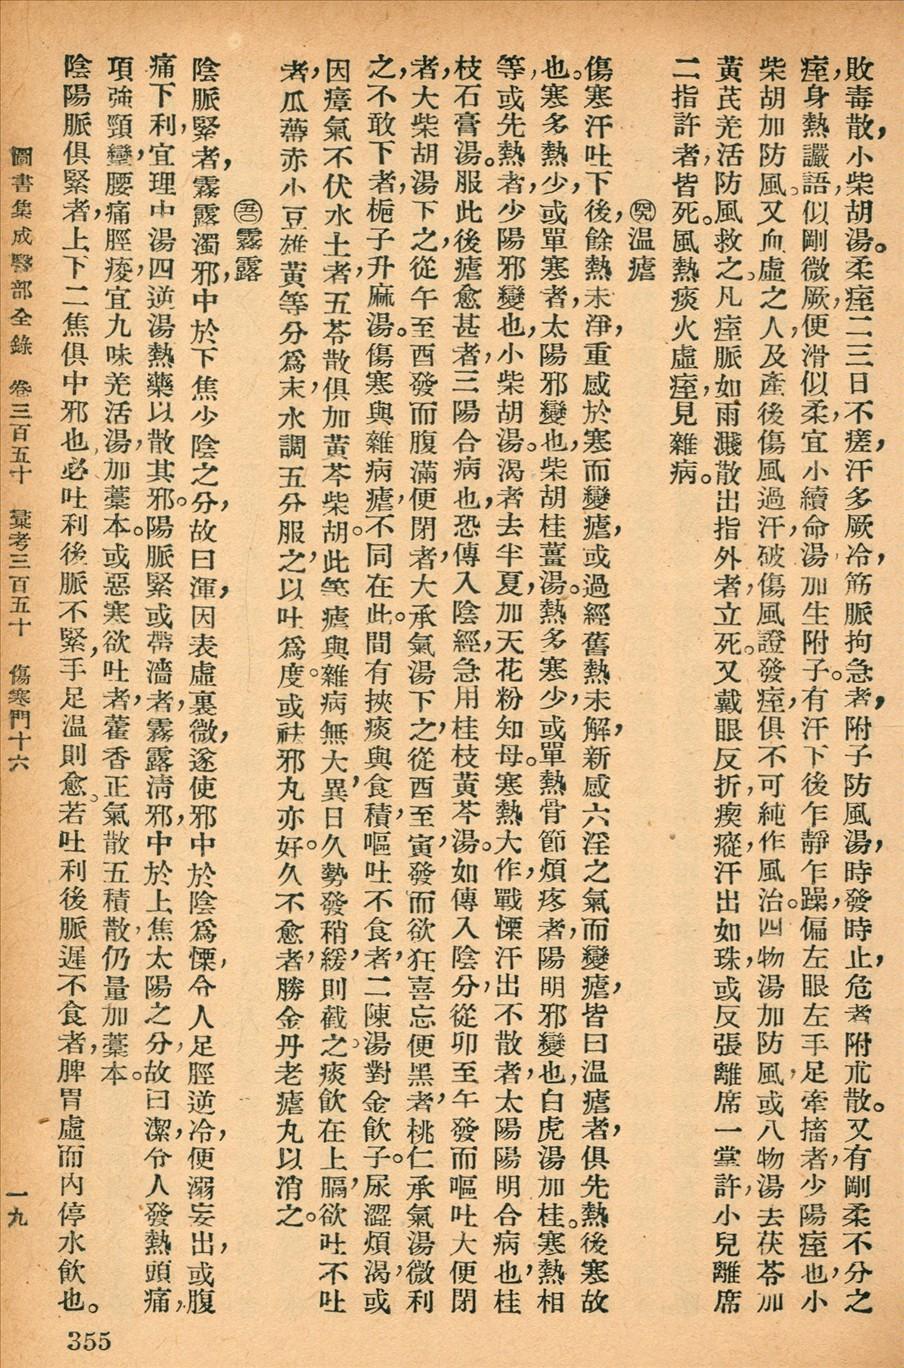 敗毒散，小柴胡湯。柔痓二三日不瘥，汗多厥冷，筋脈拘急者，附子防風湯，時發時止，危者附朮散。又有剛柔不分之
痓，身熱讝語，似剛微厥，便滑似柔，宜小續命湯加生附子。有汗下後乍靜乍躁，偏左眼左手足牽搐者，少陽痓也，小
柴胡加防風。又血虛之人及產後傷風過汗，破傷風證發痓，俱不可純作風治。四物湯加防風，或八物湯去茯苓加
黃芪羌活防風救之。凡痓脈如雨濺散出指外者，立死。又戴眼反折，瘈瘲，汗出如珠，或反張離席一掌許，小兒離席
二指許者，皆死。風熱痰火虛痓，見雜病。
溫瘧
傷寒汗吐下後，餘熱未淨，重感於寒而變瘧，或過經舊熱未解，新感六淫之氣而變瘧，皆曰溫瘧者，俱先熱後寒故
也。寒多熱少，或單寒者，太陽邪變也，柴胡桂薑湯。熱多寒少，或單熱骨節煩疼者，陽明邪變也，白虎湯加桂。寒熱相
等，或先熱者，少陽邪變也，小柴胡湯。渴者去半夏，加天花粉知母。寒熱大作，戰慄汗出不散者，太陽陽明合病也，桂
枝石膏湯。服此後瘧愈甚者，三陽合病也，恐傳入陰經，急用桂枝黃芩湯。如傳入陰分，從卯至午發而嘔吐大便閉
者，大柴胡湯下之，從午至酉發而腹滿便閉者，大承氣湯下之，從酉至寅發而欲狂喜忘便黑者，桃仁承氣湯微利
之，不敢下者，梔子升麻湯。傷寒與雜病瘧，不同在此。間有挾痰與食積，嘔吐不食者，二陳湯對金飲子。尿澀煩渴，或
因瘴氣不伏水土者，五苓散，俱加黃芩柴胡。此等瘧與雜病無大異，日久勢發稍緩，則截之。痰飲在上膈，欲吐不吐
者，瓜蔕赤小豆雄黃等分爲末，水調五分服之，以吐爲度。或祛邪丸亦好。久不愈者，勝金丹老瘧丸以消之。
霧露
陰脈緊者，霧露濁邪，中於下焦少陰之分，故曰渾，因表虛裏微，遂使邪中於陰爲慄，令人足脛逆冷，便溺妄出，或腹
痛下利，宜理中湯四逆湯熱藥以散其邪。陽脈緊或帶濇者，霧露清邪，中於上焦太陽之分，故曰潔，令人發熱頭痛，
項強頸攣，腰痛脛痠，宜九味羌活湯加藁本。或惡寒欲吐者，藿香正氣散五積散，仍量加藁本。
陰陽脈俱緊者，上下二焦俱中邪也，必吐利後脈不緊，手足溫則愈。若吐利後脈遲不食者，脾胃虛而內停水飲也。
圖書集成醫部全錄　卷三百五十　彙考三百五十　傷寒門十六　一九
355